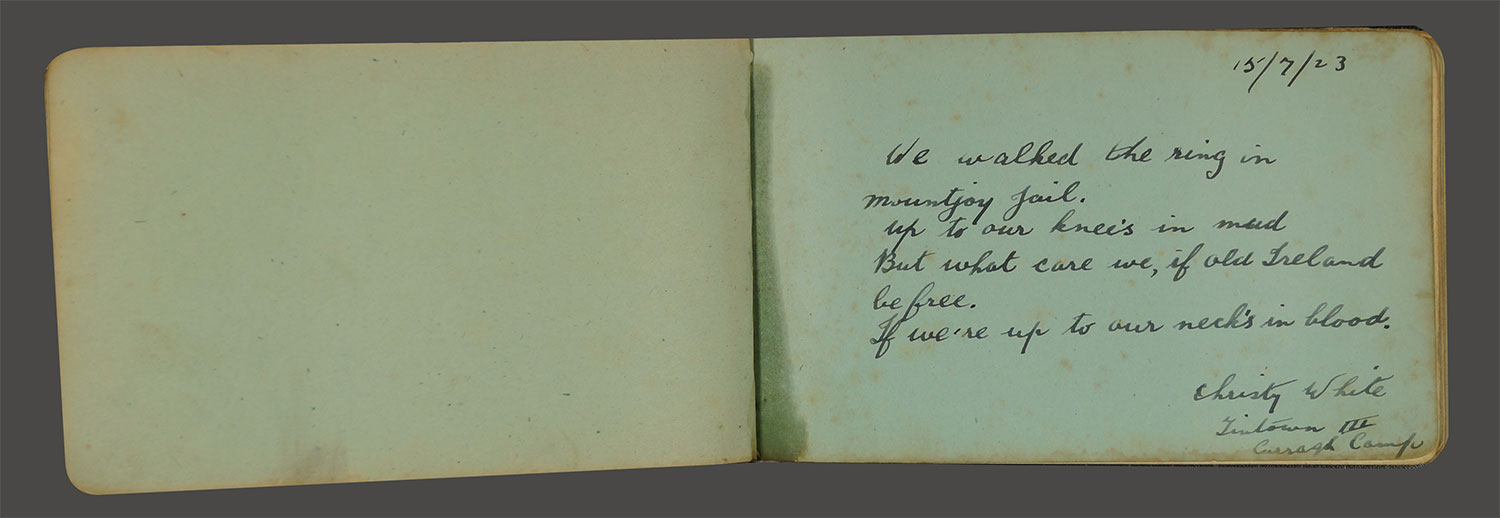 15/7/23
We walked the ring in
mountjoy jail.
up to our knee's in mud
But what care we, if old Ireland
be free.
If we're up to our neck's in blood.
Christy White
Tintown III
Curragh Camp